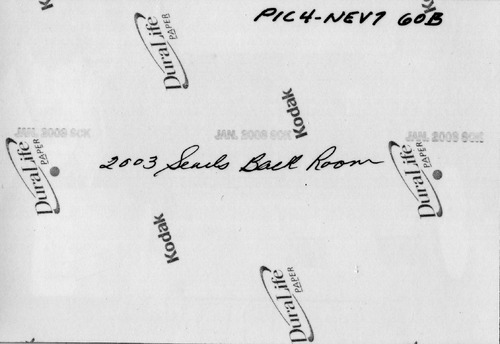 PIC4-NEV7 60B
DuraLife
PAPER
Kodak
JAN. 2003 90K
JAN. 2003 90K
JAN. 2003 90K
DuraLife
PAPER
2003 Back Room
DuraLife
PAPER
Kodak
DuraLife
PAPER